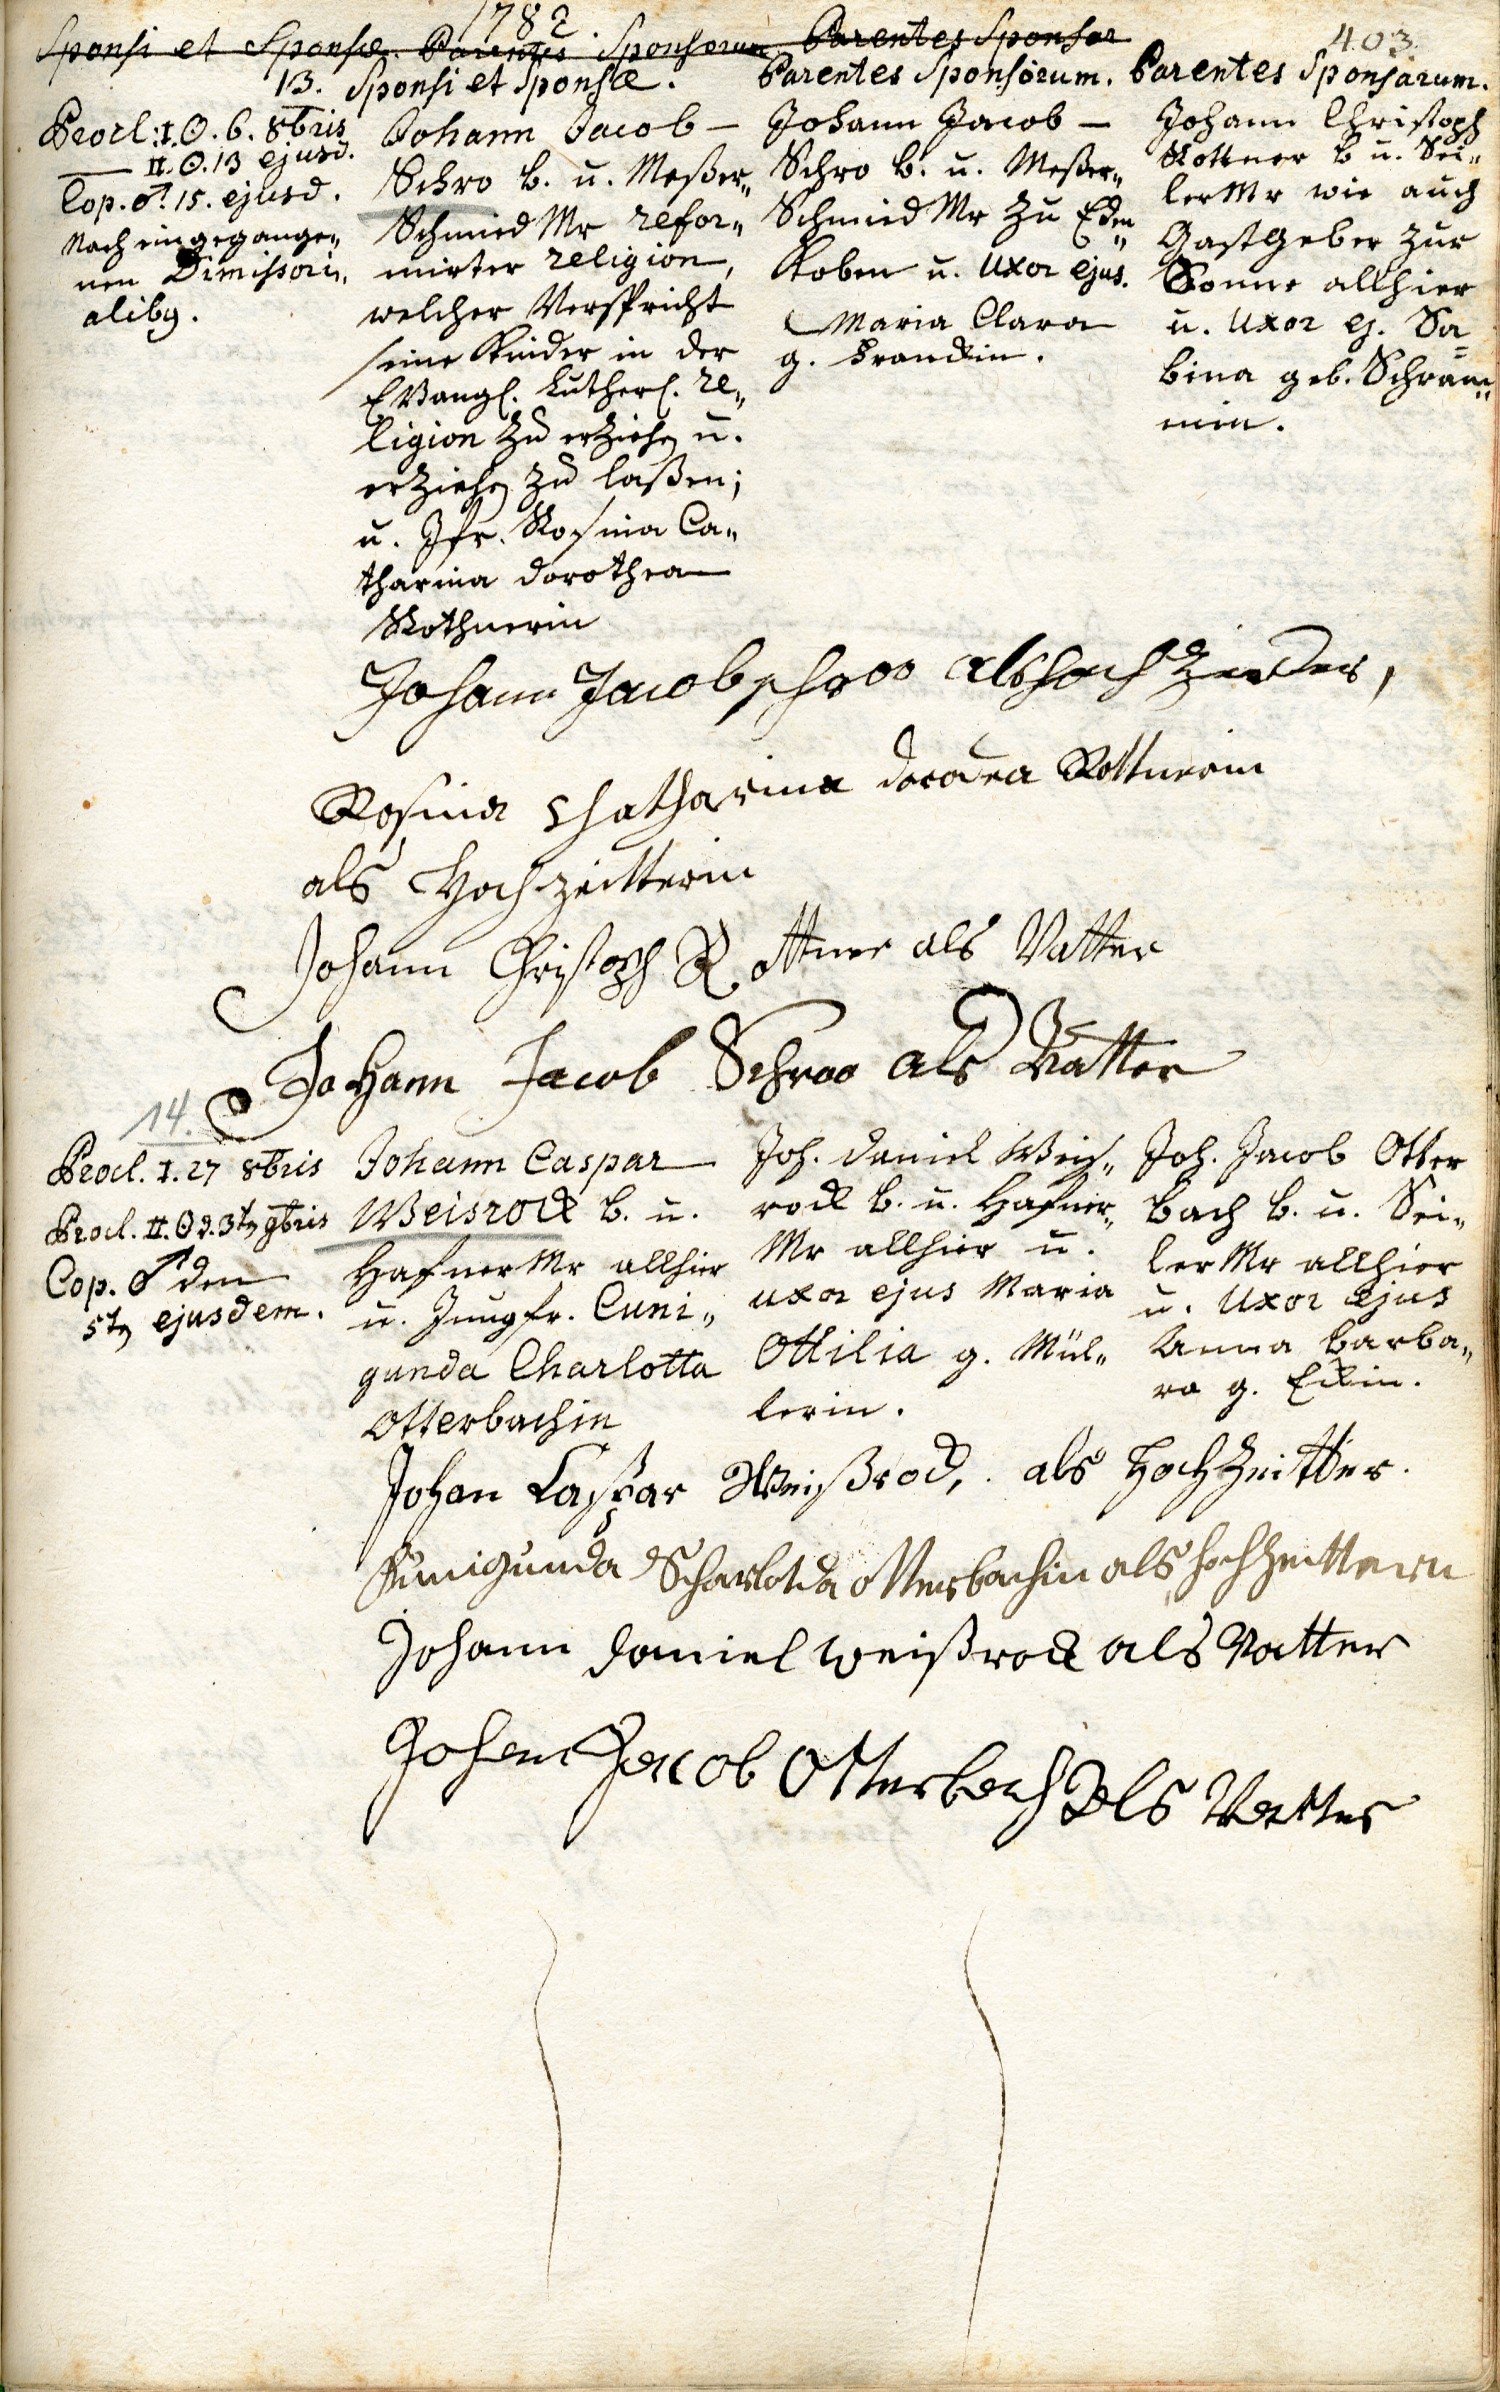 1782
403.
Sponsi et Sponsæ. Parentes Sponsorum Parentes Sponsar
13. Sponsi et Sponsæ. Parentes Sponsorum. Parentes Sponsarum.
Procl. I. ☉. 6. 8bris
II. ☉. 13 ejusd.
Cop. ♂ 15. ejusd.
Nach eingegange„
nen Dimissori„
aliby.
Johann Jacob
Schro b. u. Meßer„
Schmied Mr refor„
mirter religion,
welcher Verspricht
seine Kinder in der
EVangl. Lutherl. re„
ligion zu erziehen u.
erziehen zu laßen;
u. Jfr. Rosina Ca„
tharina dorothea
Rothnerin
Johann Jacob
Schro b. u. Meßer„
Schmied Mr zu Eden„
Koben u. Uxor ejus.
Maria Clara
g. Franckin.
Johann Christoph
Rottner b u. Sei„
lerMr wie auch
Gastgeber zur
Sonne allhier
u. Uxor ej. Sa„
bina geb. Schram„
min.
Johann Jacob schroo als hochzeider,
Rosina Chatharina doradea Rottnerin
als Hochzeitterin
Johann Christoph Rottner als Vatter
JoHann Jacob Schroo als Vatter
14.
Procl. I. 27 8bris
Procl. II. ☉ d. 3ten 9bris
Cop. ♂ den
5ten ejusdem.
Johann Caspar
Weisrock b. u.
HafnerMr allhier
u. Jungfr. Cuni„
gunda Charlotta
Otterbachin
Joh. daniel Weis„
rock b. u. Hafner„
Mr allhier u.
uxor ejus Maria
Ottilia g. Mül„
lerin.
Joh. Jacob Otter
bach b. u. Sei„
lerMr allhier
u. Uxor ejus
Anna Barba„
ra g. Eckin.
Johan Caßpar Weißrock, als HochZeitter.
Kunigunda Scharlotda otterbachin als hochzeittern
Johann daniel weißrock als Vatter
Johan Jacob Otterbach Als Vatter